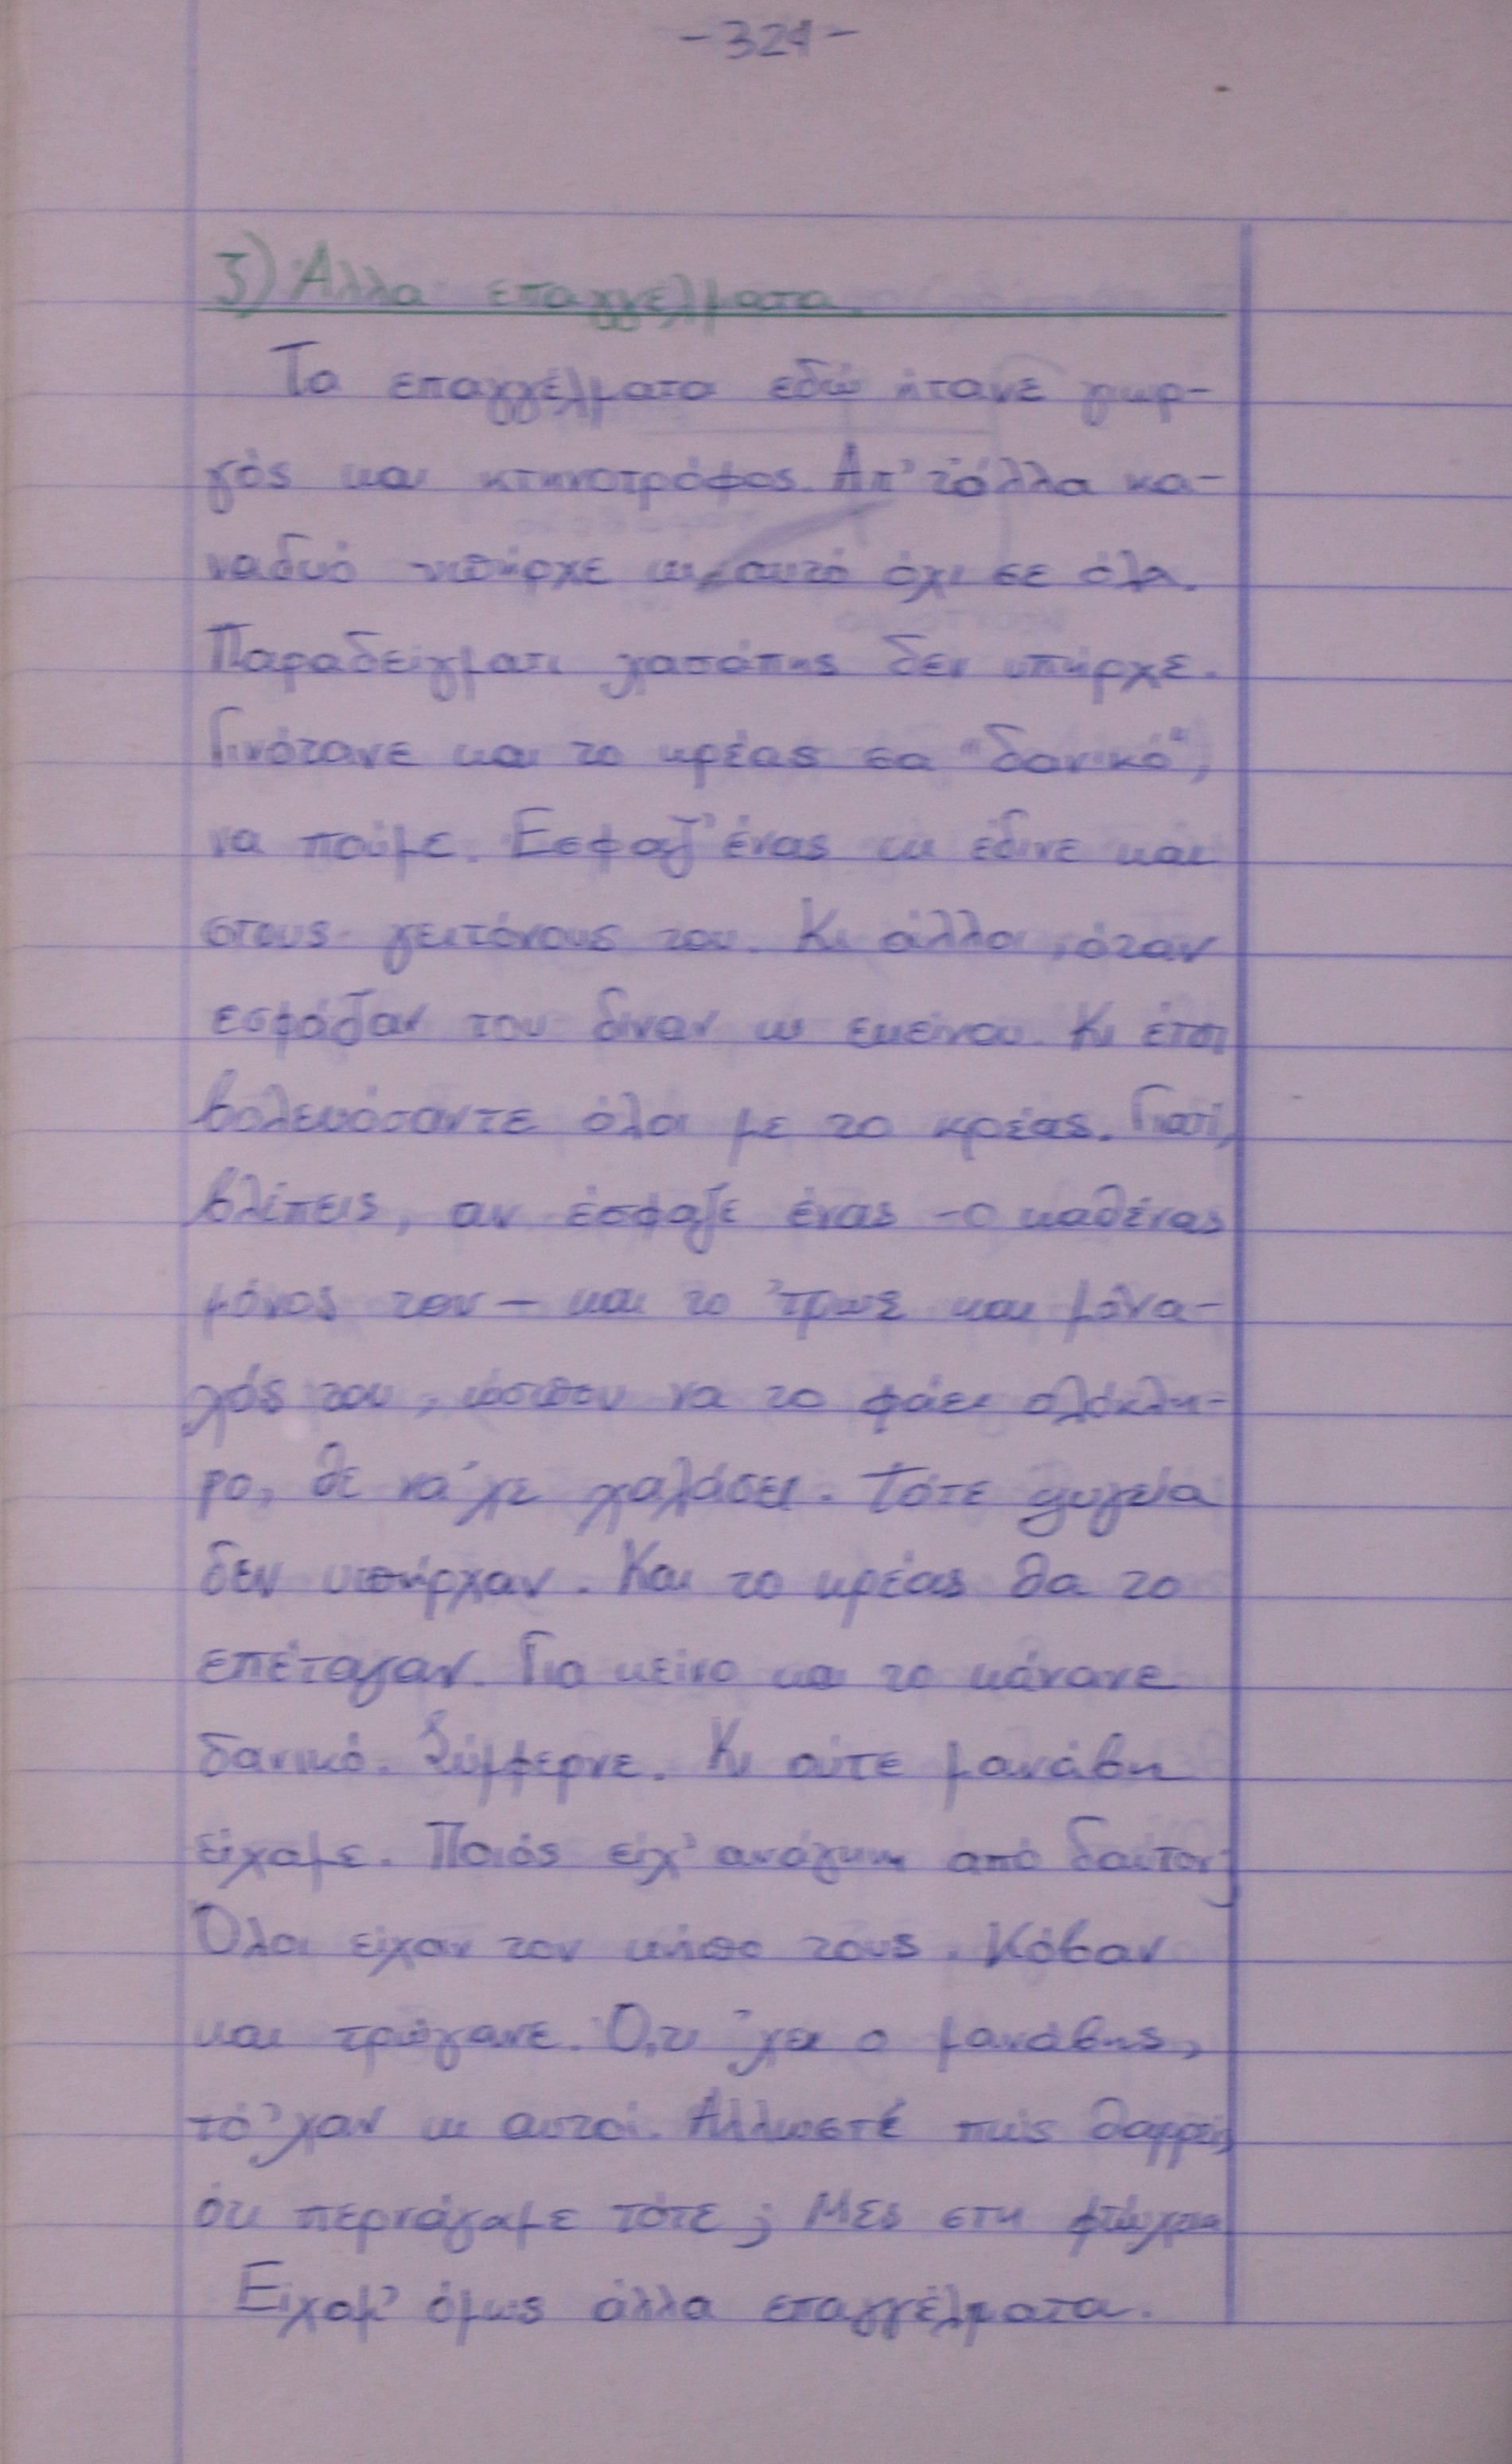 -321-
ζ) Άλλα επαγγέλματα.
Τα επαγγέλματα εδώ ήτανε γιωρ-
γός και κτηνοτρόφος. Απ' τάλλα κα-
ναδυό υπήρχε κι αυτό όχι σε όλα.
Παραδείγματι χασάπης δεν υπήρχε.
Γινότανε και το κρέας σα "δανικό",
να πούμε. Εσφαζ' ένας κι έδινε και
στους γειτόνους του. Κι άλλοι, όταν
εσφάζαν του δίναν κι εκείνου. Κι έτσι
βολευόσαντε όλοι με το κρέας. Γιατί,
βλέπεις, αν έσφαζε ένας -ο καθένας
μόνος του- και το 'τρωε και μόνα-
χός του, ώσπου να το φάει ολόκλη-
ρο, θε νά'χε χαλάσει. Τότε ψυγεία
δεν υπήρχαν. Και το κρέας θα το
επέταγαν. Για κείνο και το κάνανε
δανικό. Σύμφερνε. Κι ούτε μανάβη
είχαμε. Ποιός είχ' ανάγκη από δαύτον;
Όλοι είχαν τον κήπο τους. Κόβαν
και τρώγανε. Ό,τι 'χει ο μανάβης,
τό'χαν κι αυτοί. Αλλωστέ πώς θαρρείς
ότι περνάγαμε τότε; Μες στη φτώχεια
Είχαμ' όμως άλλα επαγγέλματα.